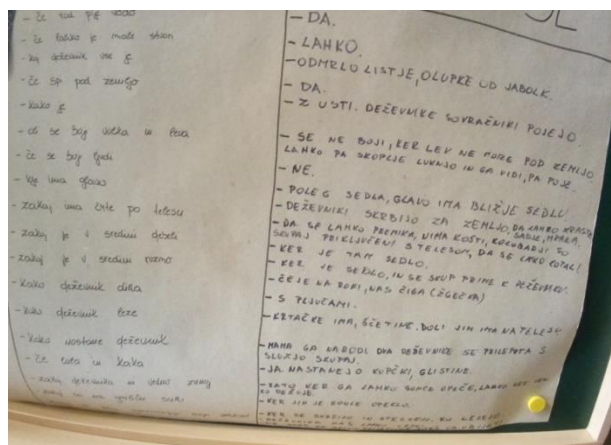 - če tud pije vodo
- če lahko je majhe slion
- kaj deževnik vse je
- če spi pod zemljo
- kako je
- ali se boji volka in leva
- če se boji ljudi
- kje ima glavo
- zakaj ima črte po telesu
- zakaj je v sredini debeli
- zakaj je v sredini rozno
- kako deževnik diha
- kako deževnik leze
- kako nastane deževnik
- če lula in kaka
- zakaj deževnika ni vedno zunaj
- DA.
- LAHKO.
- ODMRLO LISTJE, OLUPKE OD JABOLK.
- DA.
- Z USTI. DEŽEVNIKE SOVRAŽNIKI POJEJO
- SE NE BOJI, KER LEV NE MORE POD ZEMLJO.
LAHKO PA SKOPLJE LUKNJO IN GA VIDI, PA POJE.
- NE.
- POLEG SEDLA, GLAVO IMA BLIŽJE SEDLU.
- DEŽEVNIKI SKRBIJO ZA ZEMLJO, DA LAHKO RASTE
- DA SE LAHKO PREMIKA, NIMA KOSTI, KOLOBARJI SO
SKUPAJ PRIKLJUČENI S TELESOM, DA SE LAKO
- KER JE TAM SEDLO.
- KER JE SEDLO, IN SE SKUP PRIME K DEŽEVNIKU.
- ČE JE NA ROKI, NAS ČIGA (ŽGEČKA)
- S PLJUČAMI.
- KRTAČKE IMA, ŠČETINE. DOLI JIH IMA NA TELESU
- MAMA GA NARODI. DVA DEŽEVNIKE SE PRILEPITA S
SLUZJO SKUPAJ.
- JA. NASTANEJO KUPČKI, GLISTINE.
- ZATO KER GA LAHKO SONCE OPEČE, LAHKO
KO DEŽUJE.
- KER JIH JE SONCE OPEKLO.